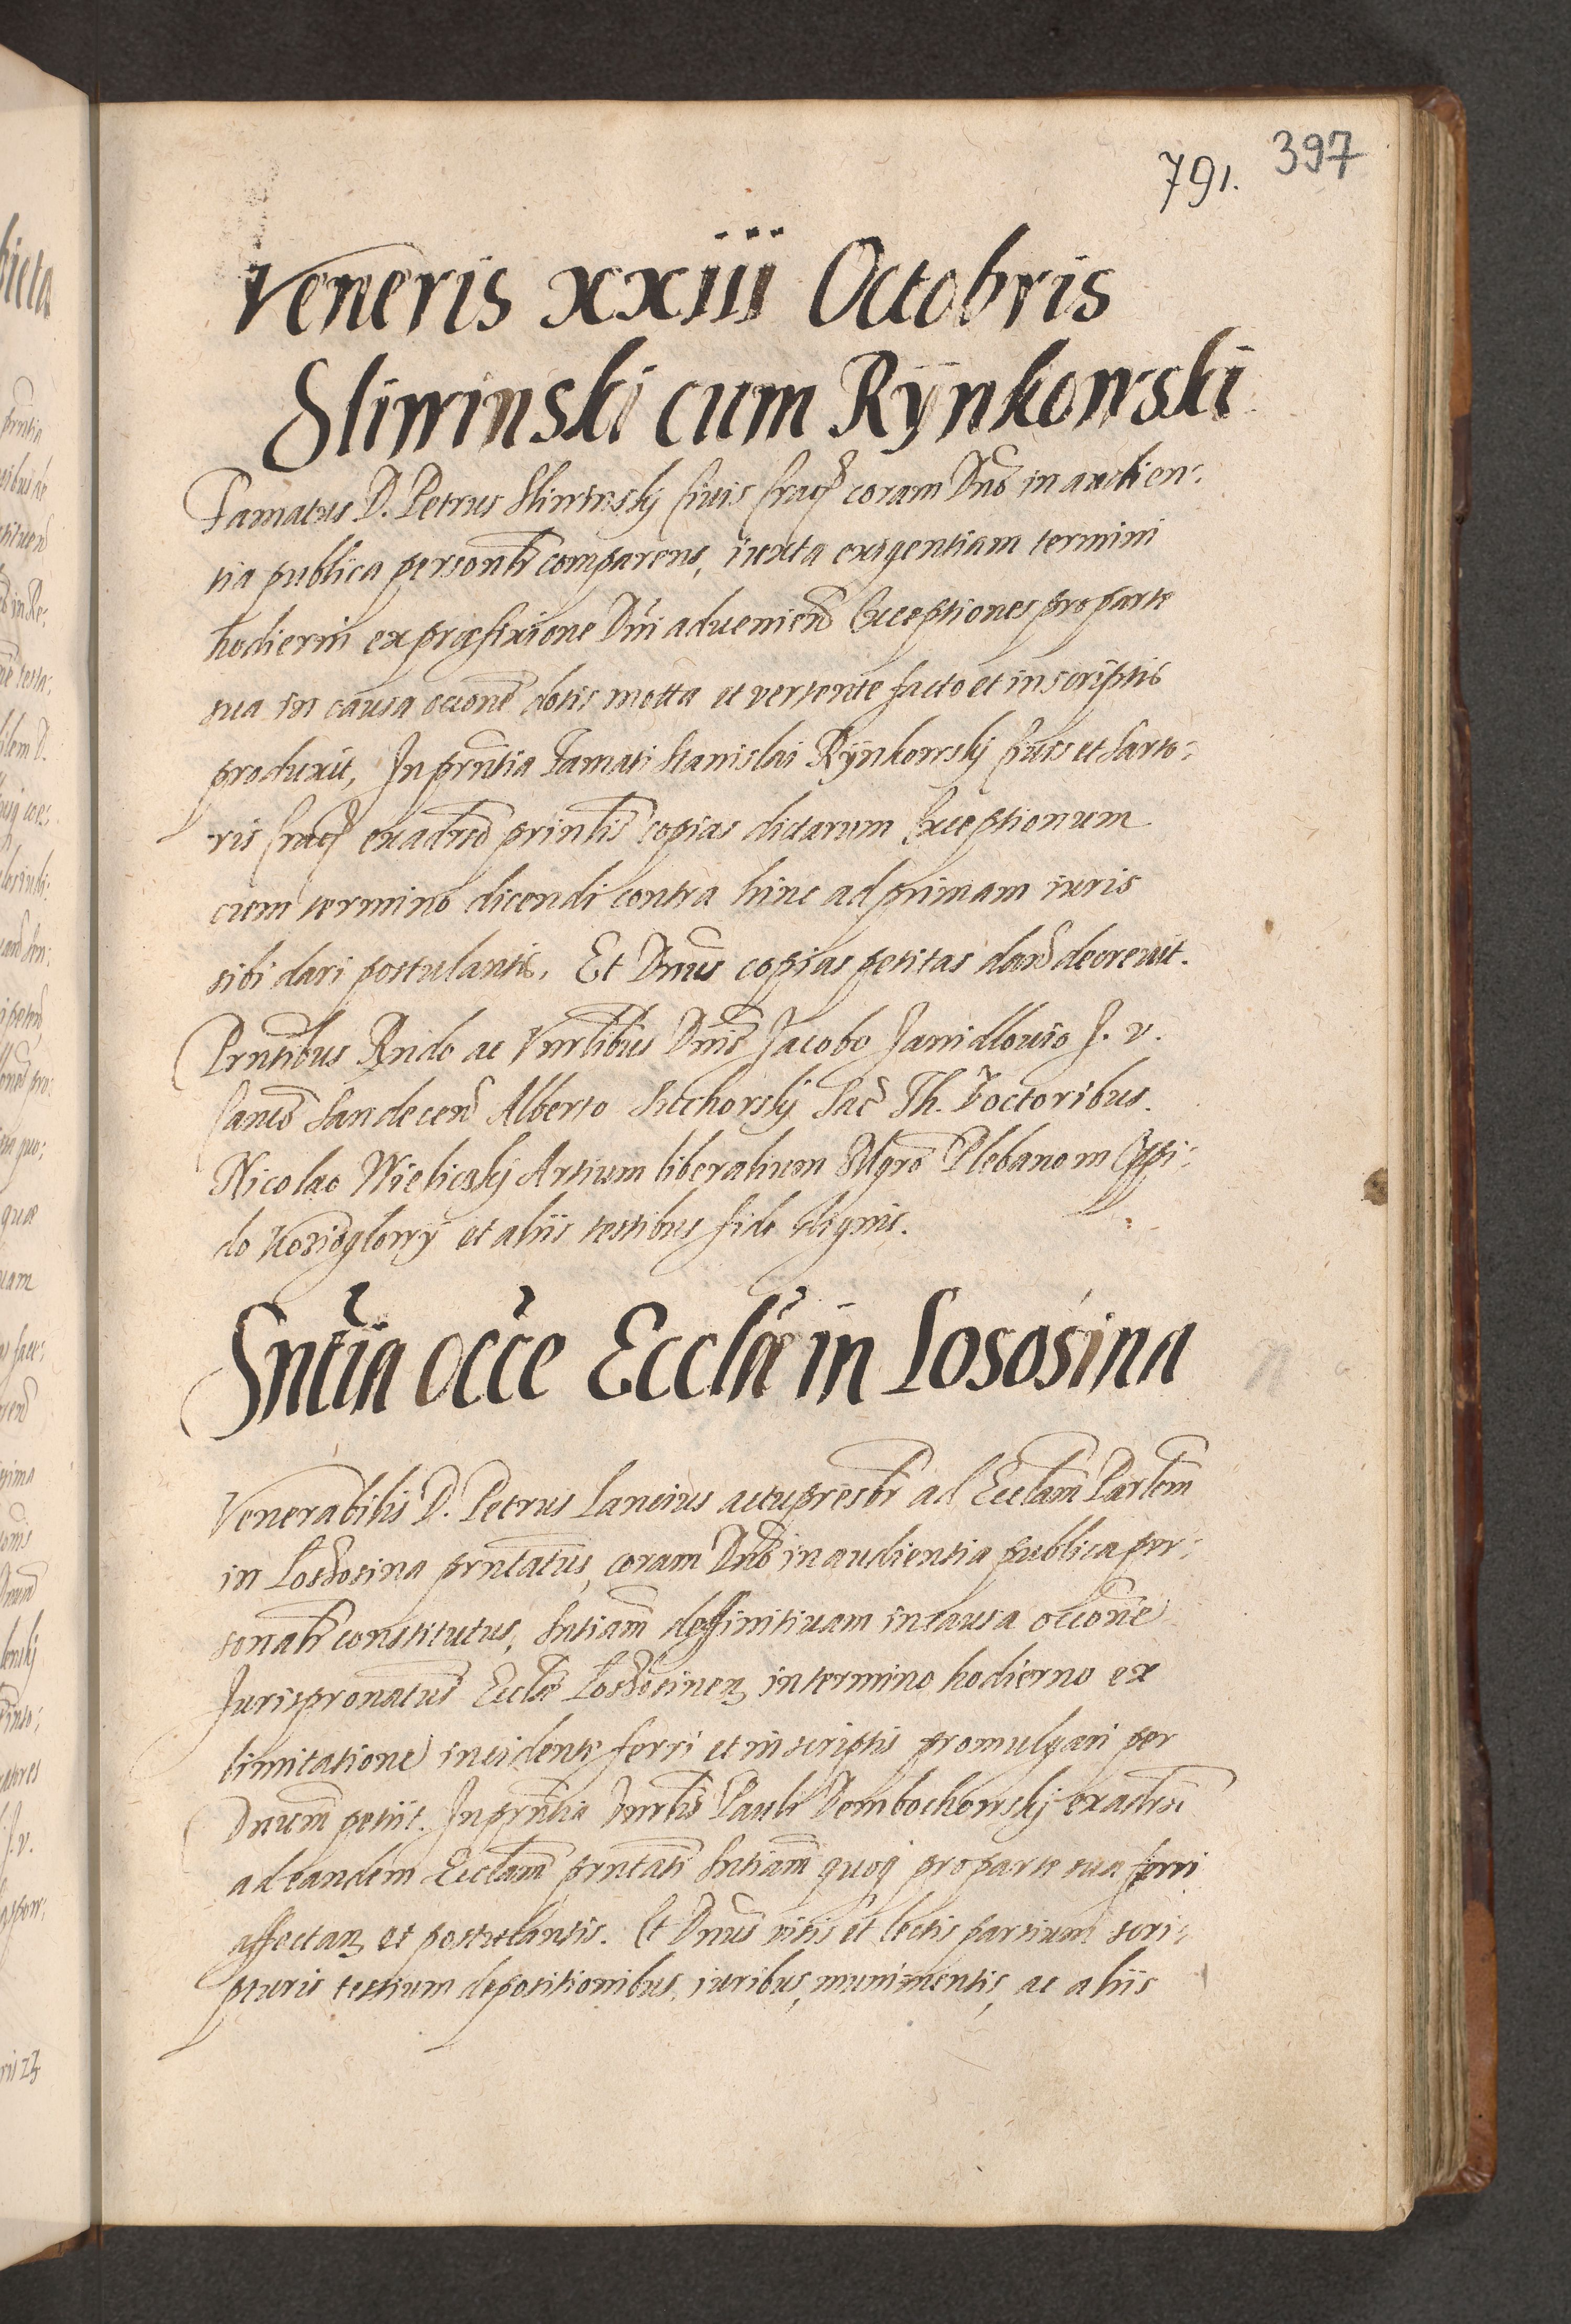 791. 397
Veneris xxiii Octobris
Sliwinski cum Rÿnkowski
Famatus D. Petrus Sliwinskÿ Ciuis Crac. coram Dno in audien:
tia publica personlr comparens, iuxta exigentiam termini
hodierni ex præfixione Dni adueniend Exceptiones pro parte
sua in causa occone dotis motta et vertente facto et in scriptis
produxit, In prntia Famati Stanislai Rÿnkowskÿ Ciuis et Sarto:
ris Crac. ex aduso prinlis copias dictarum Exceptionum
cum termino dicendi contra hinc ad primam iuris
sibi dari postulantis. Et Dnus copias petitas dand decreuit.
Prntibus Rndo ac Vnrlibus Dnis Jacobo Janidlouio J. v.
Canco Sandecen Alberto Suchorskÿ Sac Th. Doctoribus.
Nicolao Wielicskÿ Artium liberalium Mgro Plebano in Oppi:
do Koziegłowÿ et aliis testibus fide dignis.
Sntīia occe Ecclæ in Lososina
Venerabilis D. Petrus Lancius actu presbr ad Ecclam Parlem
in Lososina prntatus, coram Dno in audientia publica per:
sonalr constitutus, Sntiam deffinitiuam in causa occone
Jurispronatus Ecclæ Lososinen in termino hodierno ex
limitatione incidente ferri et in scriptis promulgari per
Dnum petiit. In prntia Vnrlis Pauli Dembochowskÿ ex aduso
ad eandem Ecclam prntati Sntiam quoq pro parte sua ferri
affectan et postulantis. Et Dnus visis et lectis partium scri:
pturis testium depositionibus, iuribus, munimentis, ac aliis